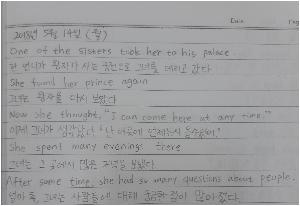 Date
2018년 5월 14일 (월)
One of the sisters took her to his palace.
한 언니가 왕자가 사는 궁전으로 그녀를 데리고 갔다
She found her prince again
그녀는 왕자를 다시 보았다
Now she thought, "I can come here at any time."
이제 그녀가 생각했다
She spent many evenings there
그녀는 그 곳에서 많은 저녁을 보냈다
After some time, she had so many questions about people.
얼마 후, 그녀는 사람들에 대해 궁금한 점이 많아졌다.